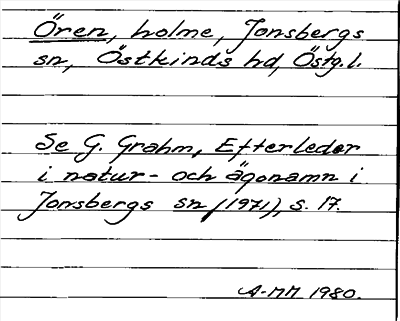 Ören, holme, Jonsbergs
sn, Östkinds hd, Östg.l.
Se G. Grahm, Efterleder
i natur- och ägonamn i
Jonsbergs sn (1971), s. 17.
A-MM 1980.